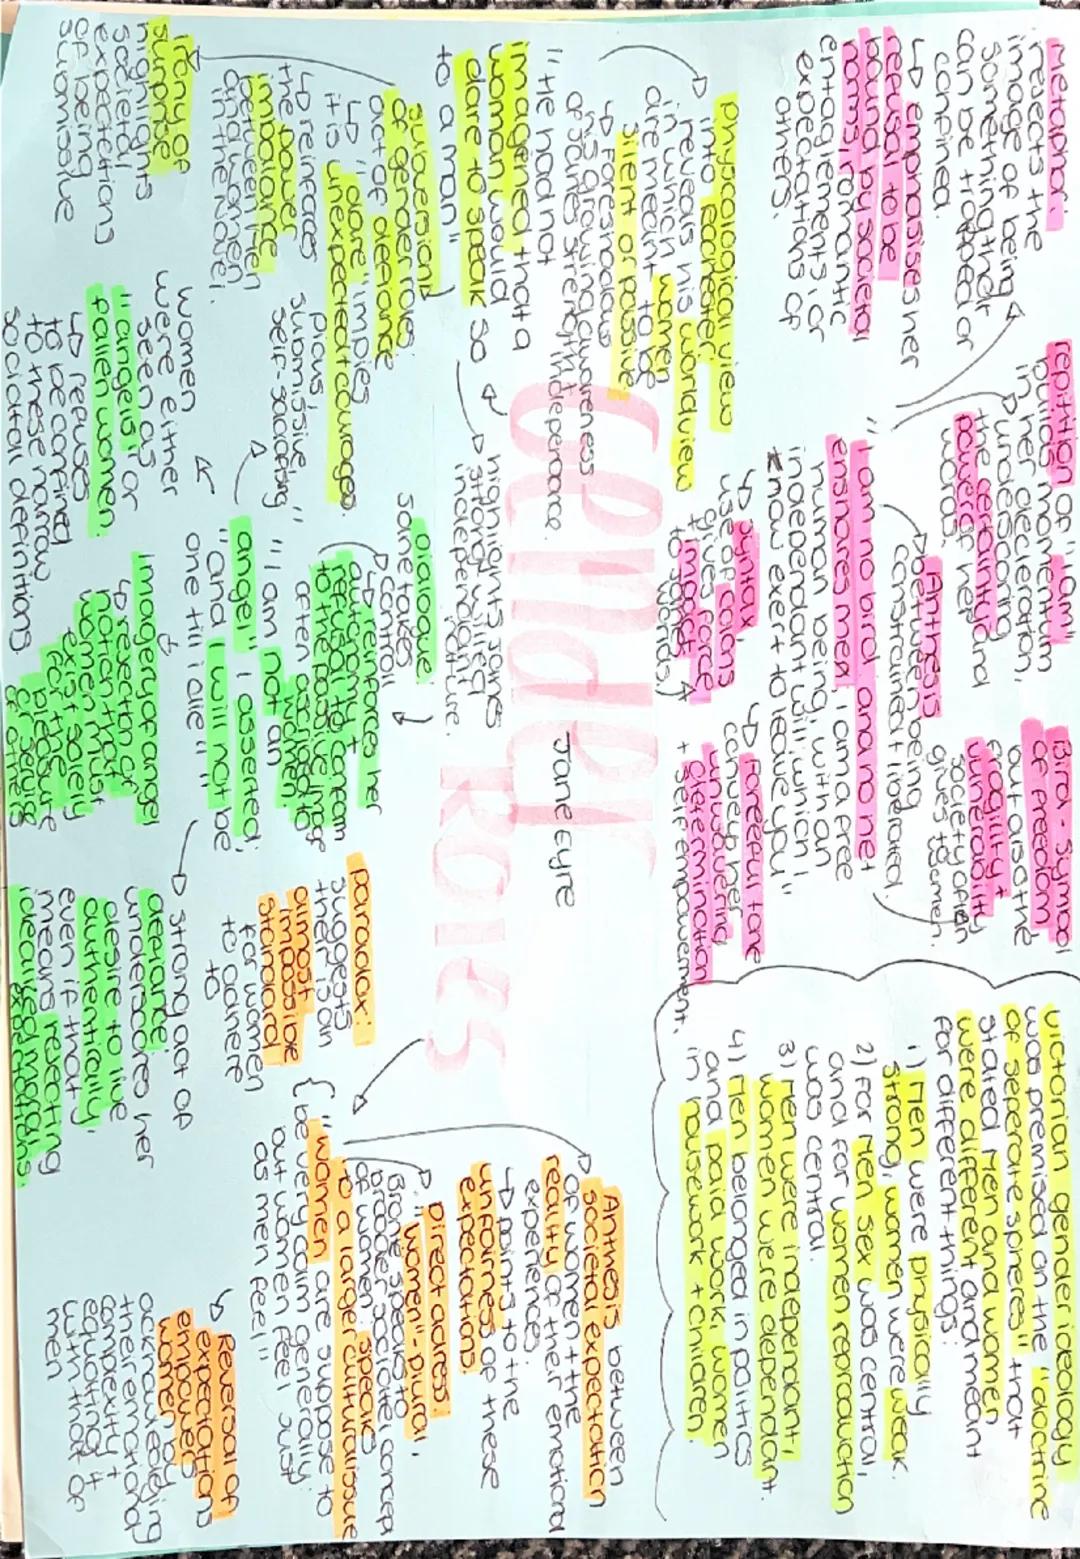 Metaphor:
rejects the
image of being
something that
can be trapped or
confined.
↳ emphasises her
refusal to be
bound by societal
norms, romantic
entaglements or
expectations of
others.
repitition of "I am"
builds momentum
in her decleration,
underscoring
the certainity and
power of her
words.
Bird - symbol
of freedom
but also the
fragility +
vunerability
society often
gives women.
Anthesis
between being
constrained + liberated.
"I am no bird and no net
ensnares men, I am a free
human being, with an
independant will, which I
now exert to leave you"
↳ syntax
use of colons
gives force
to
↳ Forceful tone
conveys her
unwavering
determination
+ self empowerment.
Victorian gender ideology
was premised on the "doctrine
of seperate spheres" that
stated Men and women
were different and meant
for different things.
1) Men were physically
strong, women were weak.
2) For Men sex was central,
and for women reproduction
was central.
3) Men were independant,
women were dependant.
4) Men belonged in politics
and paid work, women
in housework + children.
Gender
Roles
Jane Eyre
physcological view
into Rochester:
reveals his worldview
in which women
are meant to be
silent or passive
↳ Foreshadows
his growing awareness
of Janes strength + independance.
"He had not
imagened that a
woman would
dare to speak so
to a man"
highlights Janes
strong willed
independant nature.
subversion
of gender roles:
act of defiance
↳ "dare" impies
it is unexpected + courage.
↳ reinfaces
the power
imbalance
between men
and women
in the novel.
Irony of
surprise
highlights
societal
expectations
of being
submissive
pious,
submissive
self-sacrificing
women
were either
seen as
"angels" or
fallen women.
↳ refuses
to be confined
to these narrow
societall definitions
dialogue:
Jane takes
control
↳ reinforces her
autonomy +
often ascribed to
women.
"I am not an
angel" I asserted;
"and I will not be
one till I die"
Imagery of angel
↳ rejection of
notion that
women must
exist solely
for the
pleasure
or service
of others
strong act of
defiance:
underscores her
desire to live
authentically,
even if that
means rejecting
idealised moral
expectations.
paradox:
suggests
their is an
almost
impossible
standard
for women
to adhere
to
Anthesis between
societal expectation
of women + the
reality of their emotional
experiences.
↳ points to the
unfairness of these
expectations.
Direct adress:
"women" - plural,
Brontë speaks to
broader societal concept
of women, speaks
to a larger cultural issue
"women are suppose to
be very calm generally:
but women feel just
as men feel"
↳ Reversal of
expectations
empowers
women by
acknowledging
their emotional
complexity +
equating it
with that of
men